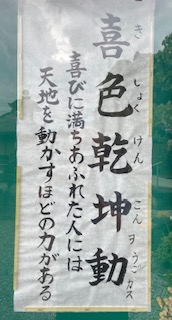 き しょく けん こん ヲ うご カス
喜色乾坤動
喜びに満ちあふれた人には
天地を動かすほどの力がある